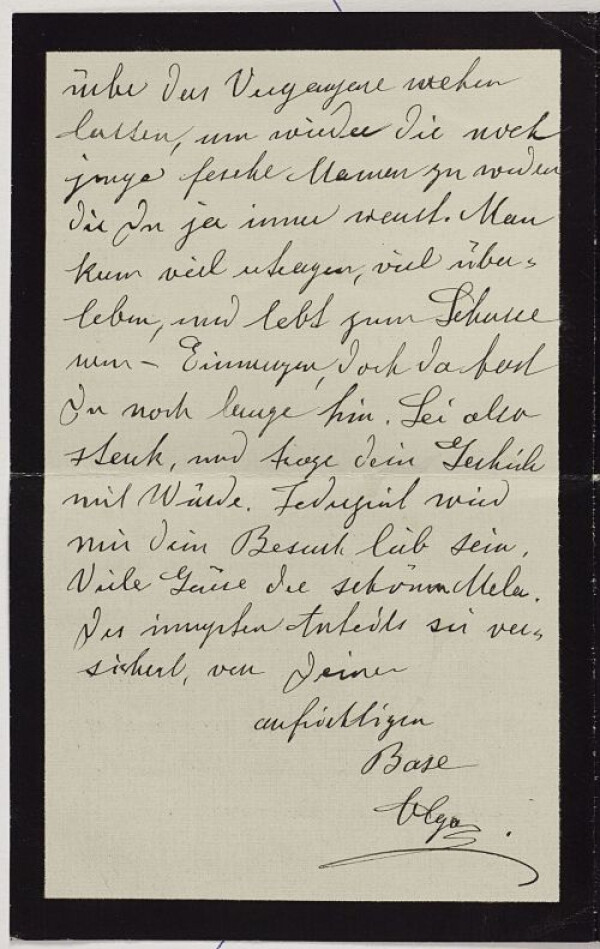 über das Vergangene wehen
lassen, um wieder die noch
junge fesche Maman zu werden
die Du ja immer warst. Man
kann viel ertragen, viel über-
leben, und lebt zum Schlusse
nur – Erinnerungen, doch da hast
Du noch lange hin. Sei also
stark, und trage dein Geschick
mit Würde. Jederzeit wird
mir dein Besuch lieb sein.
Viele Grüsse die schönen Mela.
Des innigsten Anteils sei ver-
sichert, von Deiner
aufrichtigen
Base
Olga.